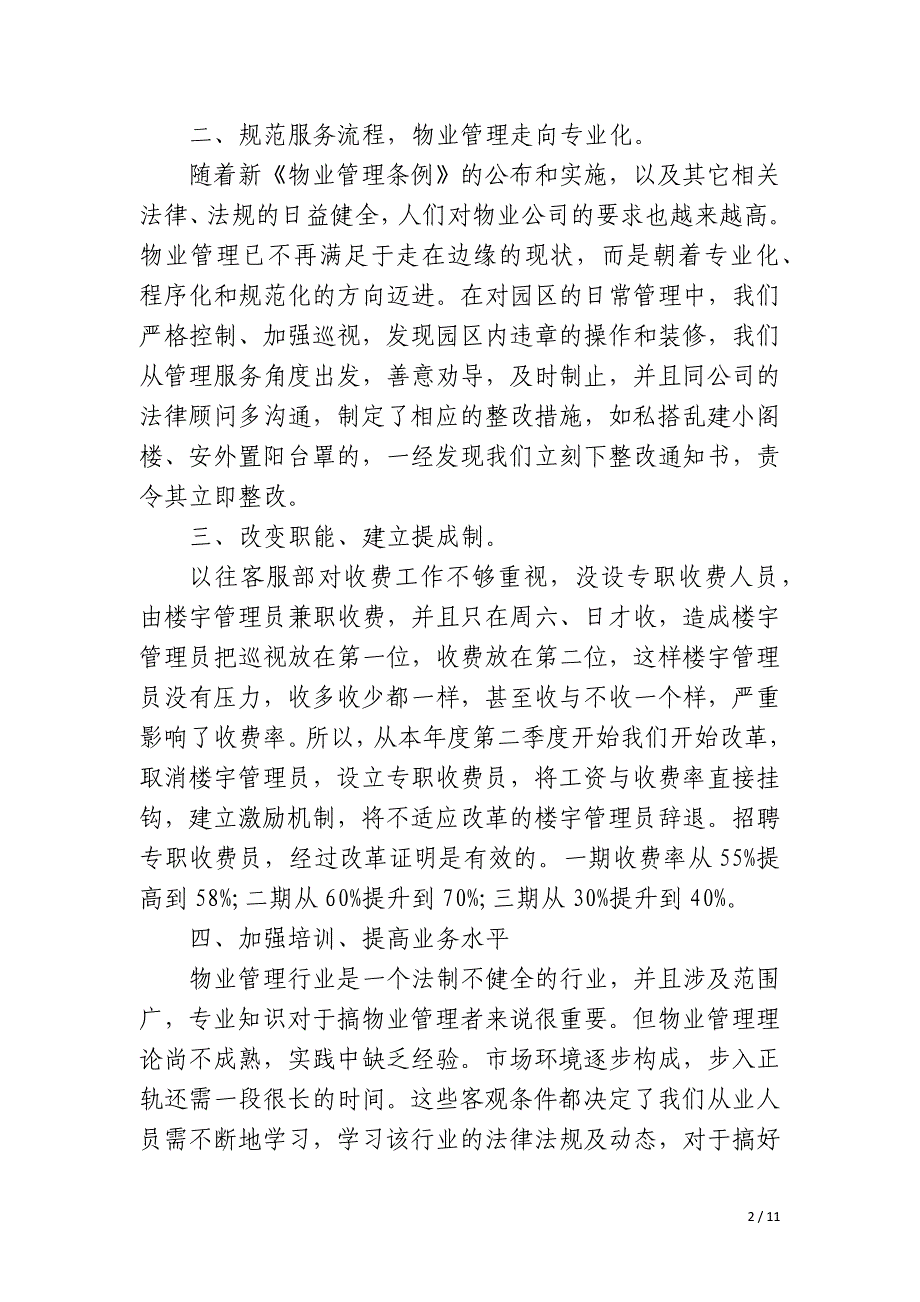 二、规范服务流程，物业管理走向专业化。
随着新《物业管理条例》的公布和实施，以及其它相关
法律、法规的日益健全，人们对物业公司的要求也越来越高。
物业管理已不再满足于走在边缘的现状，而是朝着专业化、
程序化和规范化的方向迈进。在对园区的日常管理中，我们
严格控制、加强巡视，发现园区内违章的操作和装修，我们
从管理服务角度出发，善意劝导，及时制止，并且同公司的
法律顾问多沟通，制定了相应的整改措施，如私搭乱建小阁
楼、安外置阳台罩的，一经发现我们立刻下整改通知书，责
令其立即整改。
三、改变职能、建立提成制。
以往客服部对收费工作不够重视，没设专职收费人员，
由楼宇管理员兼职收费，并且只在周六、日才收，造成楼宇
管理员把巡视放在第一位，收费放在第二位，这样楼宇管理
员没有压力，收多收少都一样，甚至收与不收一个样，严重
影响了收费率。所以，从本年度第二季度开始我们开始改革，
取消楼宇管理员，设立专职收费员，将工资与收费率直接挂
钩，建立激励机制，将不适应改革的楼宇管理员辞退。招聘
专职收费员，经过改革证明是有效的。一期收费率从 55%提
高到 58%;二期从 60%提升到 70%;三期从 30%提升到 40%。
四、加强培训、提高业务水平
物业管理行业是一个法制不健全的行业，并且涉及范围
广，专业知识对于搞物业管理者来说很重要。但物业管理理
论尚不成熟，实践中缺乏经验。市场环境逐步构成，步入正
轨还需一段很长的时间。这些客观条件都决定了我们从业人
员需不断地学习，学习该行业的法律法规及动态，对于搞好
2 / 11